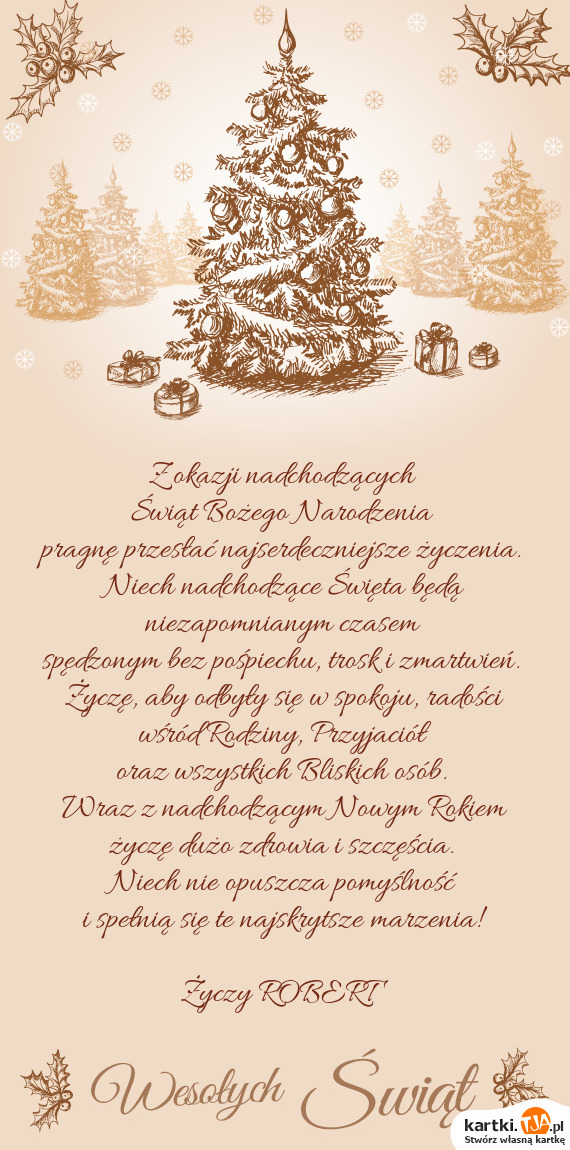 Z okazji nadchodzących
Świąt Bożego Narodzenia
pragnę przesłać najserdeczniejsze życzenia.
Niech nadchodzące Święta będą
niezapomnianym czasem
spędzonym bez pośpiechu, trosk i zmartwień.
Życzę, aby odbyły się w spokoju, radości
wśród Rodziny, Przyjaciół
oraz wszystkich Bliskich osób.
Wraz z nadchodzącym Nowym Rokiem
życzę dużo zdrowia i szczęścia.
Niech nie opuszcza pomyślność
i spełnią się te najskrytsze marzenia!
Życzy ROBERT
Wesołych Świąt
kartki.TJA.pl
Stwórz własną kartkę